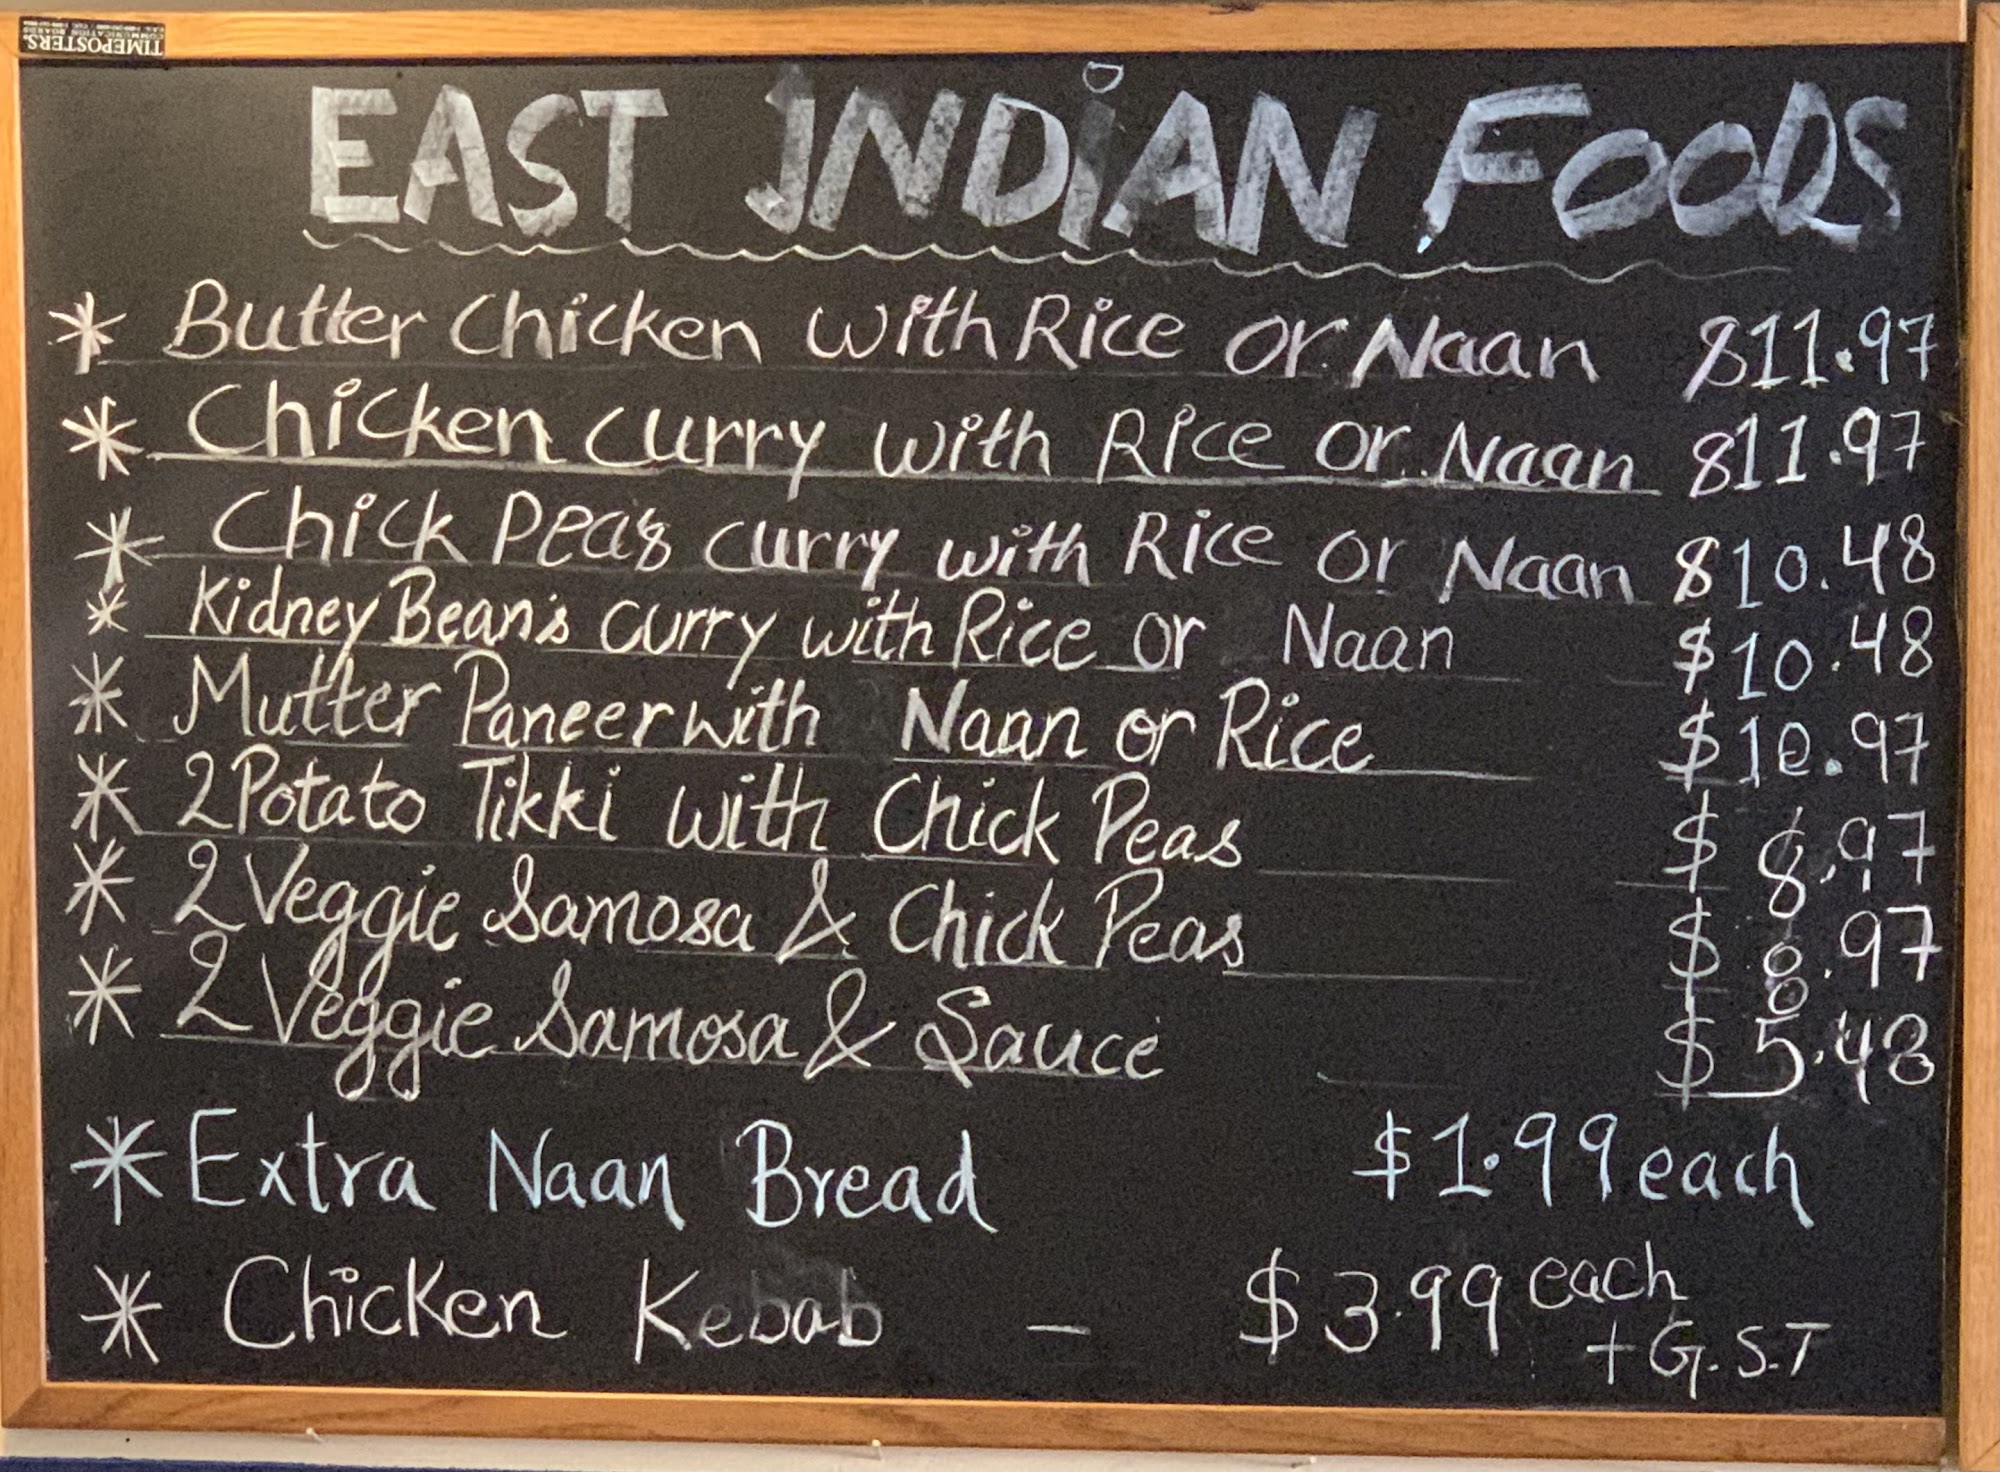 TIMEPOSTERS.
EAST INDiAN FOODS
* Butter Chicken with Rice or Naan $11.97
* Chicken Curry with Rice or Naan $11.97
* Chick Pea's Curry with Rice or Naan $10.48
* Kidney Bean's Curry with Rice or Naan $10.48
* Mutter Paneer with Naan or Rice $10.97
* 2 Potato Tikki with Chick Peas $8.97
* 2 Veggie Samosa & Chick Peas $8.97
* 2 Veggie Samosa & Sauce $5.48
* Extra Naan Bread $1.99 each
* Chicken Kebab - $3.99 each
+ G.S.T